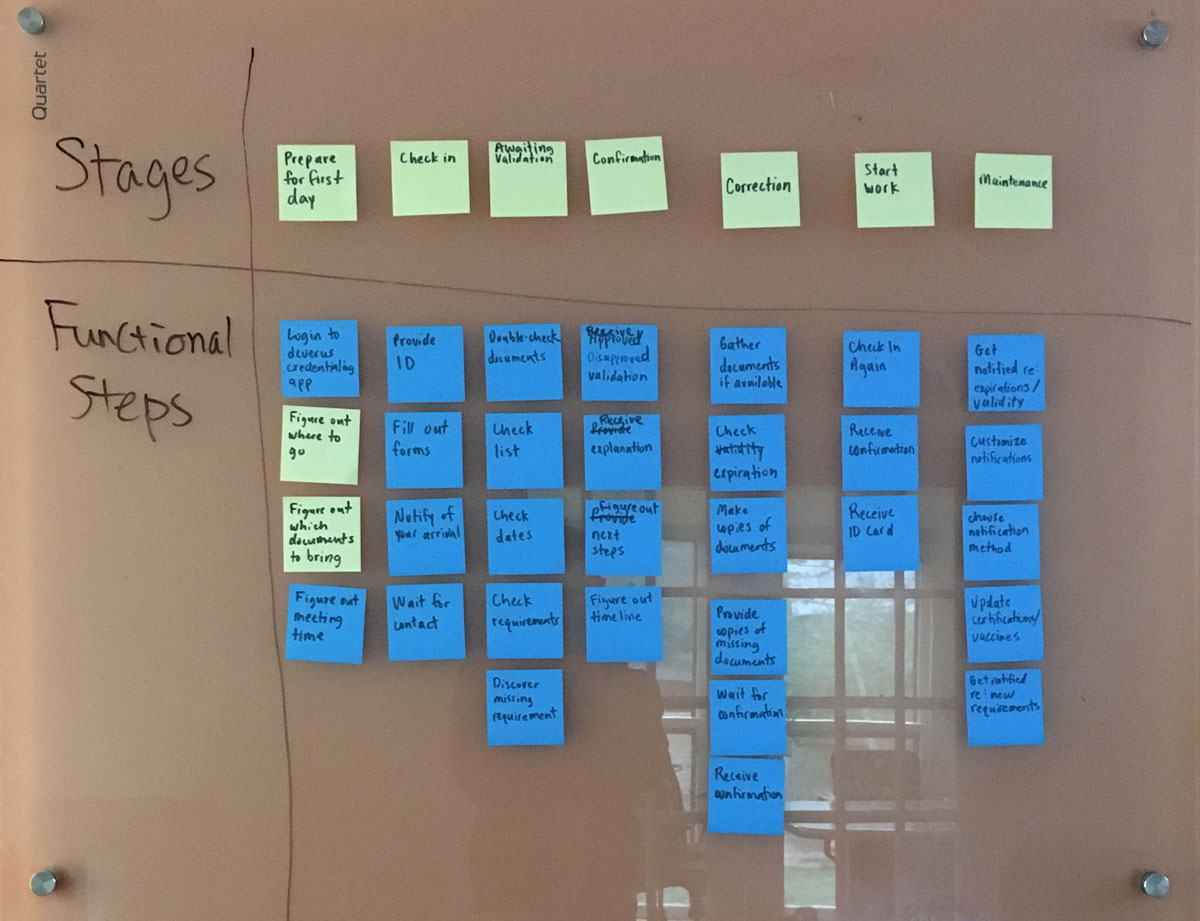 Quartet
Stages
Prepare
for first
day
Check in
Awaiting
Validation
Confirmation
Correction
Start
work
Maintenance
Functional
Steps
Login to
deverus
credentialing
app
Figure out
where to
go
Figure out
which
documents
to bring
Figure out
meeting
time
Provide
ID
Fill out
forms
Notify of
your arrival
Wait for
contact
Double-check
documents
Check
list
Check
dates
Check
requirements
Discover
missing
requirement
Receive
Approved
Disapproved
validation
Receive
Provide
explanation
Figure out
Provide
next
steps
Figure out
timeline
Gather
documents
if available
Check
validity
expiration
Make
copies of
documents
Provide
copies of
missing
documents
Wait for
confirmation
Receive
confirmation
Check In
Again
Receive
confirmation
Receive
ID Card
Get
notified re:
expirations/
validity
Customize
notifications
choose
notification
method
Update
certifications/
vaccines
Get notified
re: new
requirements